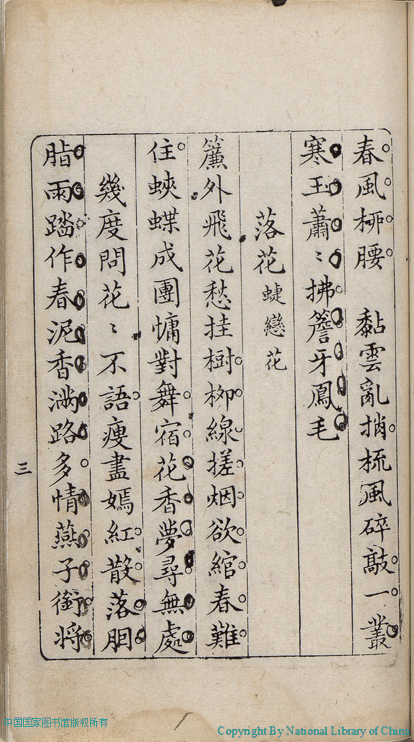 春風桞腰　黏雲亂捎梳風碎敲一叢
寒玉蕭〻拂簷牙鳳毛
落花蜨戀花
簾外飛花愁挂樹柳線搓烟欲綰春難
住蛺蝶成團慵對舞宿花香夢尋無處
幾度問花〻不語瘦盡嫣紅散落胭
脂雨踏作春泥香滿路多情燕子銜将
三
中国国家图书馆版权所有
Copyright By National Library of China